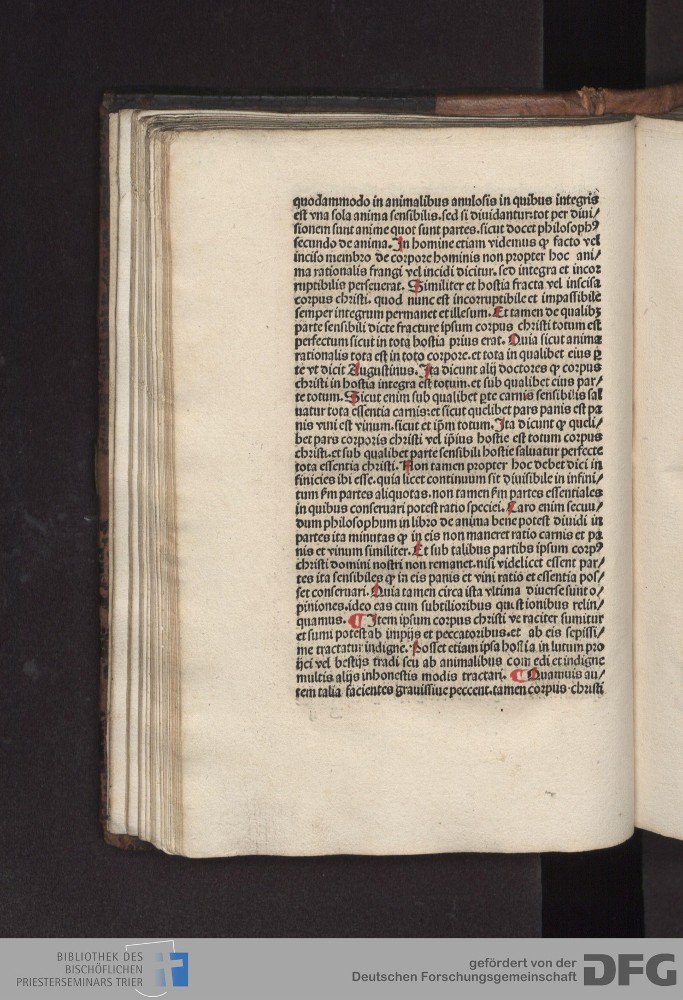 quodammodo in animalibus anulosis in quibus integris
est vna sola anima sensibilis.sed si diuidantur:tot per diui/
sionem sunt anime quot sunt partes.sicut docet philosophꝰ
secundo de anima.In homine etiam videmus ꝙ facto vel
inciso membro de corpore hominis non propter hoc ani/
ma rationalis frangi vel incidi dicitur.sed integra et incor
ruptibilis perseuerat.Similiter et hostia fracta vel inscisa
corpus christi.quod nunc est incorruptibile et impassibile
semper integrum permanet et illesum.Et tamen de qualibꝫ
parte sensibili dicte fracture ipsum corpus christi totum est
perfectum sicut in tota hostia prius erat.Quia sicut anima
rationalis tota est in toto corpore.et tota in qualibet eius ꝑ
te vt dicit Augustinus.Ita dicunt alij doctores ꝙ corpus
christi in hostia integra est totum.et sub qualibet eius par/
te totum.Sicut enim sub qualibet ꝑte carnis sensibilis sal
uatur tota essentia carnis:et sicut quelibet pars panis est pa
nis vini est vinum.sicut et ip̄m totum.Ita dicunt ꝙ queli/
bet pars corporis christi vel ip̄ius hostie est totum corpus
christi.et sub qualibet parte sensibili hostie saluatur perfecte
tota essentia christi.Non tamen propter hoc debet dici in
finicies ibi esse.quia licet continuum sit diuisibile in infini/
tum ẜm partes aliquotas.non tamen ẜm partes essentiales
in quibus conseruari potest ratio speciei.Caro enim secun/
dum philosophum in libro de anima bene potest diuidi in
partes ita minutas ꝙ in eis non maneret ratio carnis et pa
nis et vinum similiter.Et sub talibus partibs ipsum corpꝰ
christi domini nostri non remanet.nisi videlicet essent par/
tes ita sensibiles ꝙ in eis panis et vini ratio et essentia pos/
set conseruari.Quia tamen circa ista vltima diuerse sunt o/
piniones.ideo eas cum subtilioribus questionibus relin/
quamus.¶ Item ipsum corpus christi veraciter sumitur
et sumi potest ab impijs et peccatoribus.et ab eis sepissi/
me tractatur indigne.Posset etiam ipsa hostia in lutum pro
ijci vel bestijs tradi seu ab animalibus comedi et indigne
multis alijs inhonestis modis tractari.¶ Quamuis au/
tem talia facientes grauissiue peccent.tamen corpus christi
BIBLIOTHEK DES
BISCHÖFLICHEN
PRIESTERSEMINARS TRIER
gefördert von der
Deutschen Forschungsgemeinschaft
DFG